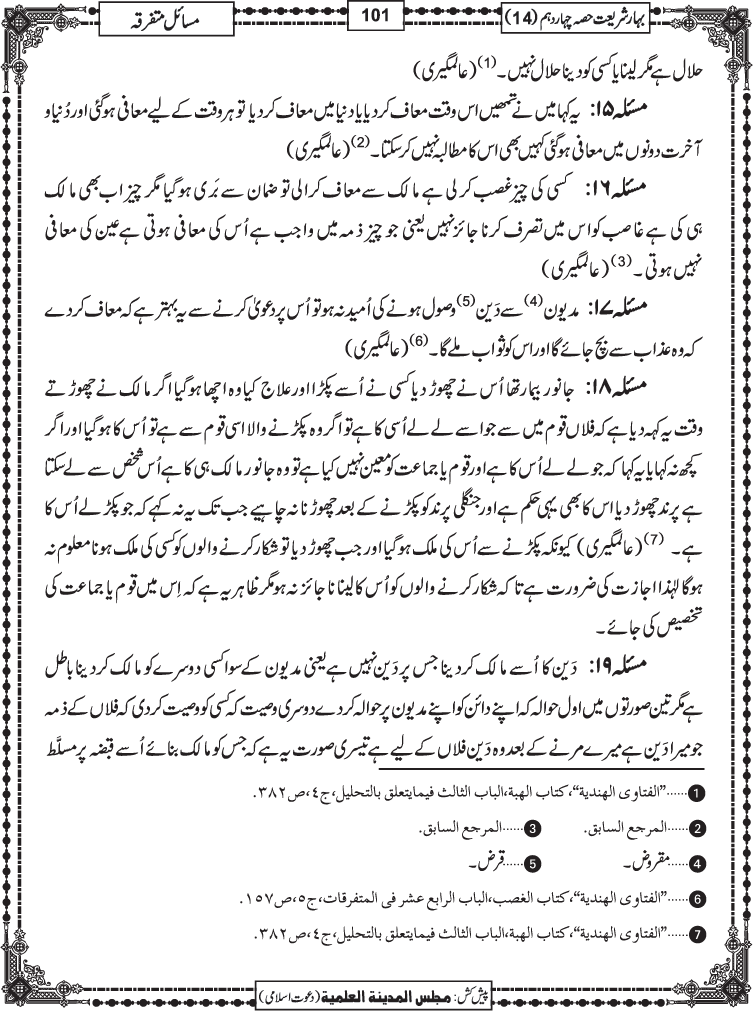 بہارِ شریعت حصہ چہاردہم (14)
101
مسائل متفرقہ
حلال ہے مگر لینا یا کسی کو دینا حلال نہیں۔(1) (عالمگیری)
مسئلہ ۱۵: یہ کہا میں نے تمھیں اس وقت معاف کر دیا یا دنیا میں معاف کر دیا تو ہر وقت کے لیے معافی ہوگئی اور دُنیا و
آخرت دونوں میں معافی ہوگئی کہیں بھی اس کا مطالبہ نہیں کر سکتا۔(2) (عالمگیری)
مسئلہ ۱۶: کسی کی چیز غصب کر لی ہے مالک سے معاف کرالی تو ضمان سے بَری ہوگیا مگر چیز اب بھی مالک
ہی کی ہے غاصب کو اس میں تصرف کرنا جائز نہیں یعنی جو چیز ذمہ میں واجب ہے اُس کی معافی ہوتی ہے عین کی معافی
نہیں ہوتی۔(3) (عالمگیری)
مسئلہ ۱۷: مدیون(4) سے دَین(5) وصول ہونے کی اُمید نہ ہو تو اُس پر دعویٰ کرنے سے یہ بہتر ہے کہ معاف کر دے
کہ وہ عذاب سے بچ جائے گا اور اس کو ثواب ملے گا۔(6) (عالمگیری)
مسئلہ ۱۸: جانور بیمار تھا اُس نے چھوڑ دیا کسی نے اُسے پکڑا اور علاج کیا وہ اچھا ہوگیا اگر مالک نے چھوڑتے
وقت یہ کہہ دیا ہے کہ فلاں قوم میں سے جو اسے لے لے اُسی کا ہے تو اگر وہ پکڑنے والا اسی قوم سے ہے تو اُس کا ہوگیا اور اگر
کچھ نہ کہا یا یہ کہا کہ جو لے لے اُس کا ہے اور قوم یا جماعت کو معین نہیں کیا ہے تو وہ جانور مالک ہی کا ہے اُس شخص سے لے سکتا
ہے پرند چھوڑ دیا اس کا بھی یہی حکم ہے اور جنگلی پرند کو پکڑنے کے بعد چھوڑنا نہ چاہیے جب تک یہ نہ کہے کہ جو پکڑ لے اُس کا
ہے۔(7) (عالمگیری) کیونکہ پکڑنے سے اُس کی ملک ہوگیا اور جب چھوڑ دیا تو شکار کرنے والوں کو کسی کی ملک ہونا معلوم نہ
ہوگا لہٰذا اجازت کی ضرورت ہے تاکہ شکار کرنے والوں کو اُس کا لینا ناجائز نہ ہو مگر ظاہر یہ ہے کہ اِس میں قوم یا جماعت کی
تخصیص کی جائے۔
مسئلہ ۱۹: دَین کا اُسے مالک کر دینا جس پر دَین نہیں ہے یعنی مدیون کے سوا کسی دوسرے کو مالک کر دینا باطل
ہے مگر تین صورتوں میں اول حوالہ کہ اپنے دائن کو اپنے مدیون پر حوالہ کر دے دوسری وصیت کہ کسی کو وصیت کر دی کہ فلاں کے ذمہ
جو میرا دَین ہے میرے مرنے کے بعد وہ دَین فلاں کے لیے ہے تیسری صورت یہ ہے کہ جس کو مالک بنائے اُسے قبضہ پر مسلَّط
1......"الفتاوى الهندية"، كتاب الهبة، الباب الثالث فيما يتعلق بالتحليل، ج٤، ص٣٨٢.
2......المرجع السابق. 3......المرجع السابق.
4......مقروض۔ 5......قرض۔
6......"الفتاوى الهندية"، كتاب الغصب، الباب الرابع عشر في المتفرقات، ج٥، ص١٥٧.
7......"الفتاوى الهندية"، كتاب الهبة، الباب الثالث فيما يتعلق بالتحليل، ج٤، ص٣٨٢.
پیش کش: مجلس المدينة العلمية (دعوتِ اسلامی)